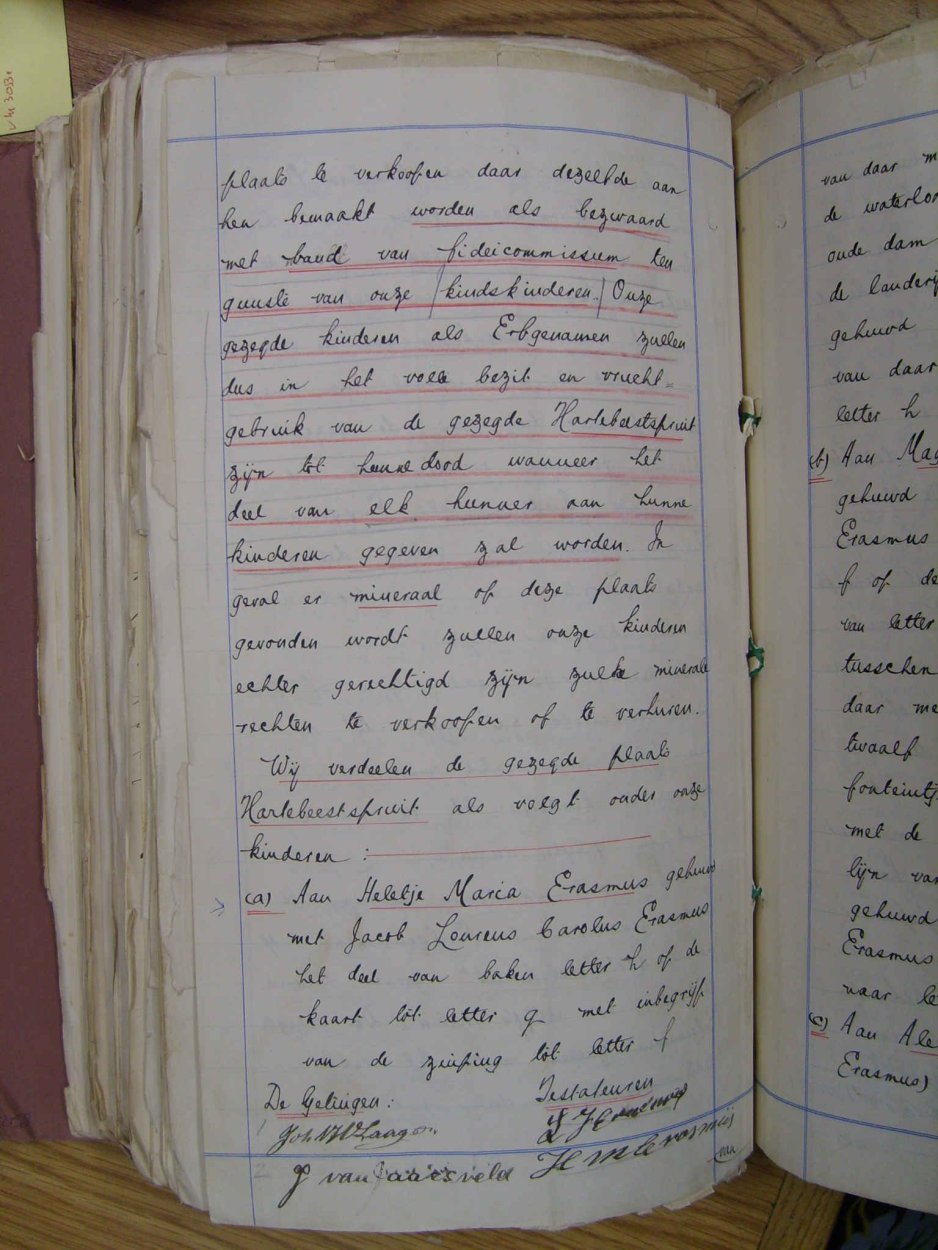 plaats te verkoopen daar dezelfde aan
hen bemaakt worden als bezwaard
met band van fideicommissum ten
gunste van onze (kindskinderen.) Onze
gezegde kinderen als Erfgenamen zullen
dus in het volle bezit en vrucht=
gebruik van de gezegde Hartebeestspruit
zijn tot hunne dood wanneer het
deel van elk hunner aan hunne
kinderen gegeven zal worden. In
geval er mineraal op deze plaats
gevonden wordt zullen onze kinderen
echter gerechtigd zijn zulke minerale
rechten te verkoopen of te verhuren.
Wij verdeelen de gezegde plaats
Hartebeestspruit als volgt onder onze
kinderen :
(a) Aan Heletje Maria Erasmus gehuwd
met Jacob Lourens Carolus Erasmus
het deel van baken letter h op de
kaart tot letter g met inbegrip
van de tot letter f
De Getuigen: Testateuren
J van Jaarsveld
van
van daar m
de waterloo
oude dam
de landerij
gehuwd
van daar
letter h
(b) Aan Mag
gehuwd
Erasmus
f op de
van letter
tusschen
daar me
twaalf
fonteintj
met de
lijn van
gehuwd
Erasmus
naar le
(c) Aan Ale
Erasmus)